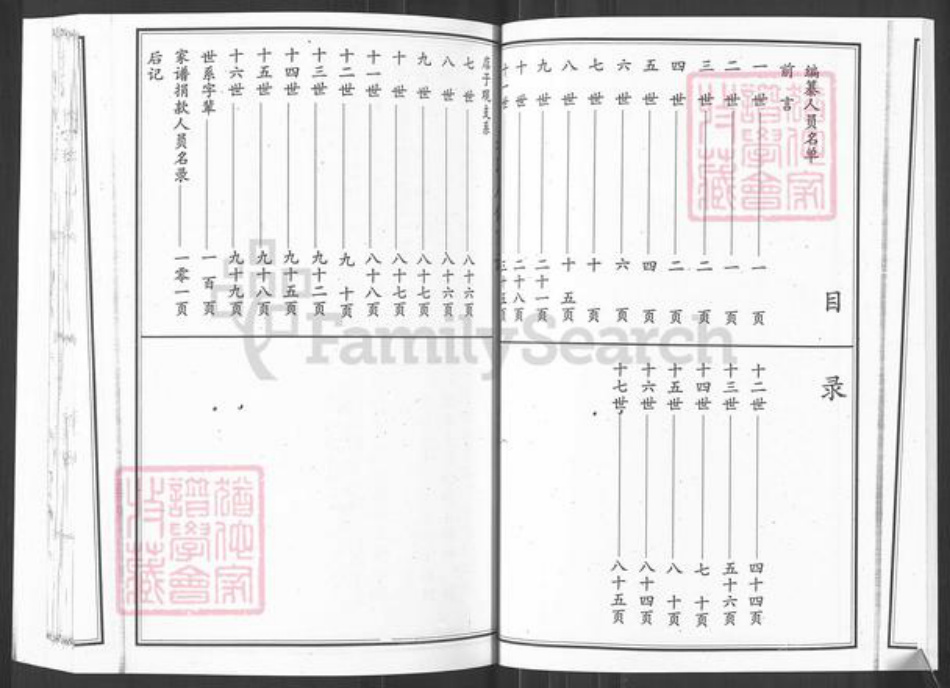 目录
编纂人员名单
前言
一世 一页
二世 一页
三世 二页
四世 二页
五世 四页
六世 六页
七世 十页
八世 十五页
九世 二十一页
十世 二十八页
十一世 三十五页
十二世 四十四页
十三世 五十六页
十四世 七十页
十五世 八十页
十六世 八十四页
十七世 八十五页
七世 八十六页
八世 八十六页
九世 八十七页
十世 八十七页
十一世 八十八页
十二世 九十页
十三世 九十二页
十四世 九十五页
十五世 九十八页
十六世 九十九页
世系字辈 一百页
家谱捐款人员名录 一零一页
后记
FamilySearch